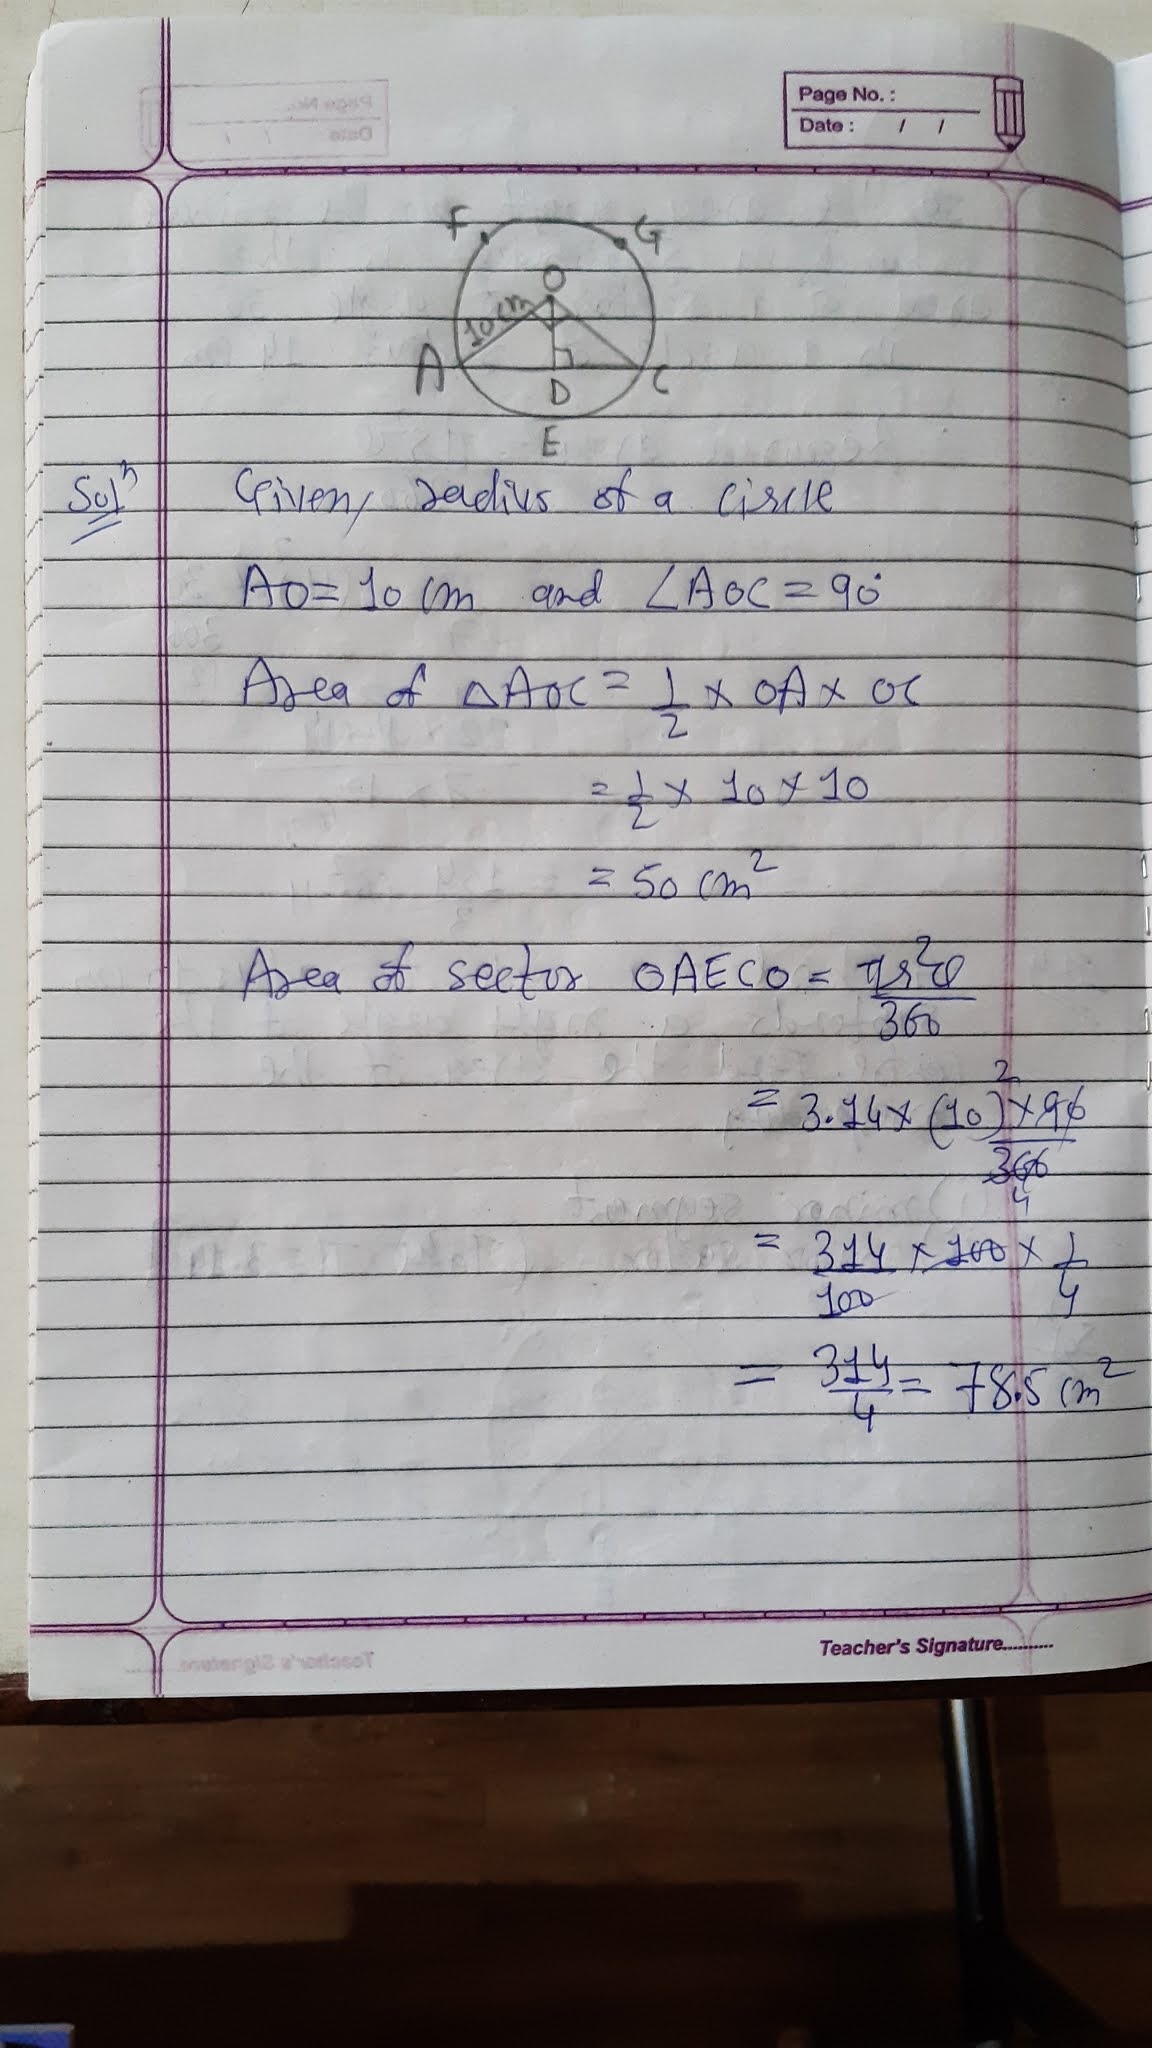 Page No. :
Date : / /
F G
O
10 cm
A D C
E
Solⁿ Given, radius of a circle
AO = 10 cm and ∠AOC = 90°
Area of △AOC = 1/2 × OA × OC
= 1/2 × 10 × 10
= 50 cm²
Area of sector OAECO = πr²θ/360
= 3.14 × (10)² × 90/360 4
= 314/100 × 100 × 1/4
= 314/4 = 78.5 cm²
Teacher's Signature..........